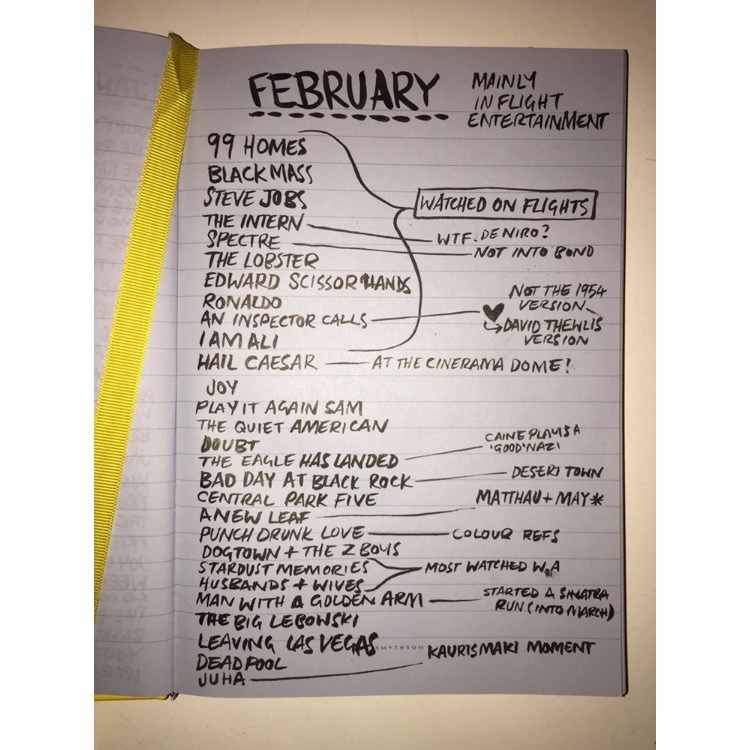 FEBRUARY
MAINLY
IN FLIGHT
ENTERTAINMENT
99 HOMES
BLACK MASS
STEVE JOBS
WATCHED ON FLIGHTS
THE INTERN
WTF. DE NIRO?
SPECTRE
NOT INTO BOND
THE LOBSTER
EDWARD SCISSORHANDS
RONALDO
NOT THE 1954
VERSION
AN INSPECTOR CALLS
DAVID THEWLIS
VERSION
I AM ALI
HAIL CAESAR
AT THE CINERAMA DOME!
JOY
PLAY IT AGAIN SAM
THE QUIET AMERICAN
DOUBT
CAINE PLAYS A
'GOOD' NAZI
THE EAGLE HAS LANDED
BAD DAY AT BLACK ROCK
DESERT TOWN
CENTRAL PARK FIVE
MATTHAU + MAY*
A NEW LEAF
PUNCH DRUNK LOVE
COLOUR REFS
DOGTOWN + THE Z BOYS
STARDUST MEMORIES
MOST WATCHED W.A
HUSBANDS + WIVES
MAN WITH A GOLDEN ARM
STARTED A SINATRA
RUN (INTO MARCH)
THE BIG LEBOWSKI
LEAVING LAS VEGAS
SMYTHSON
KAURISMAKI MOMENT
DEADPOOL
JUHA